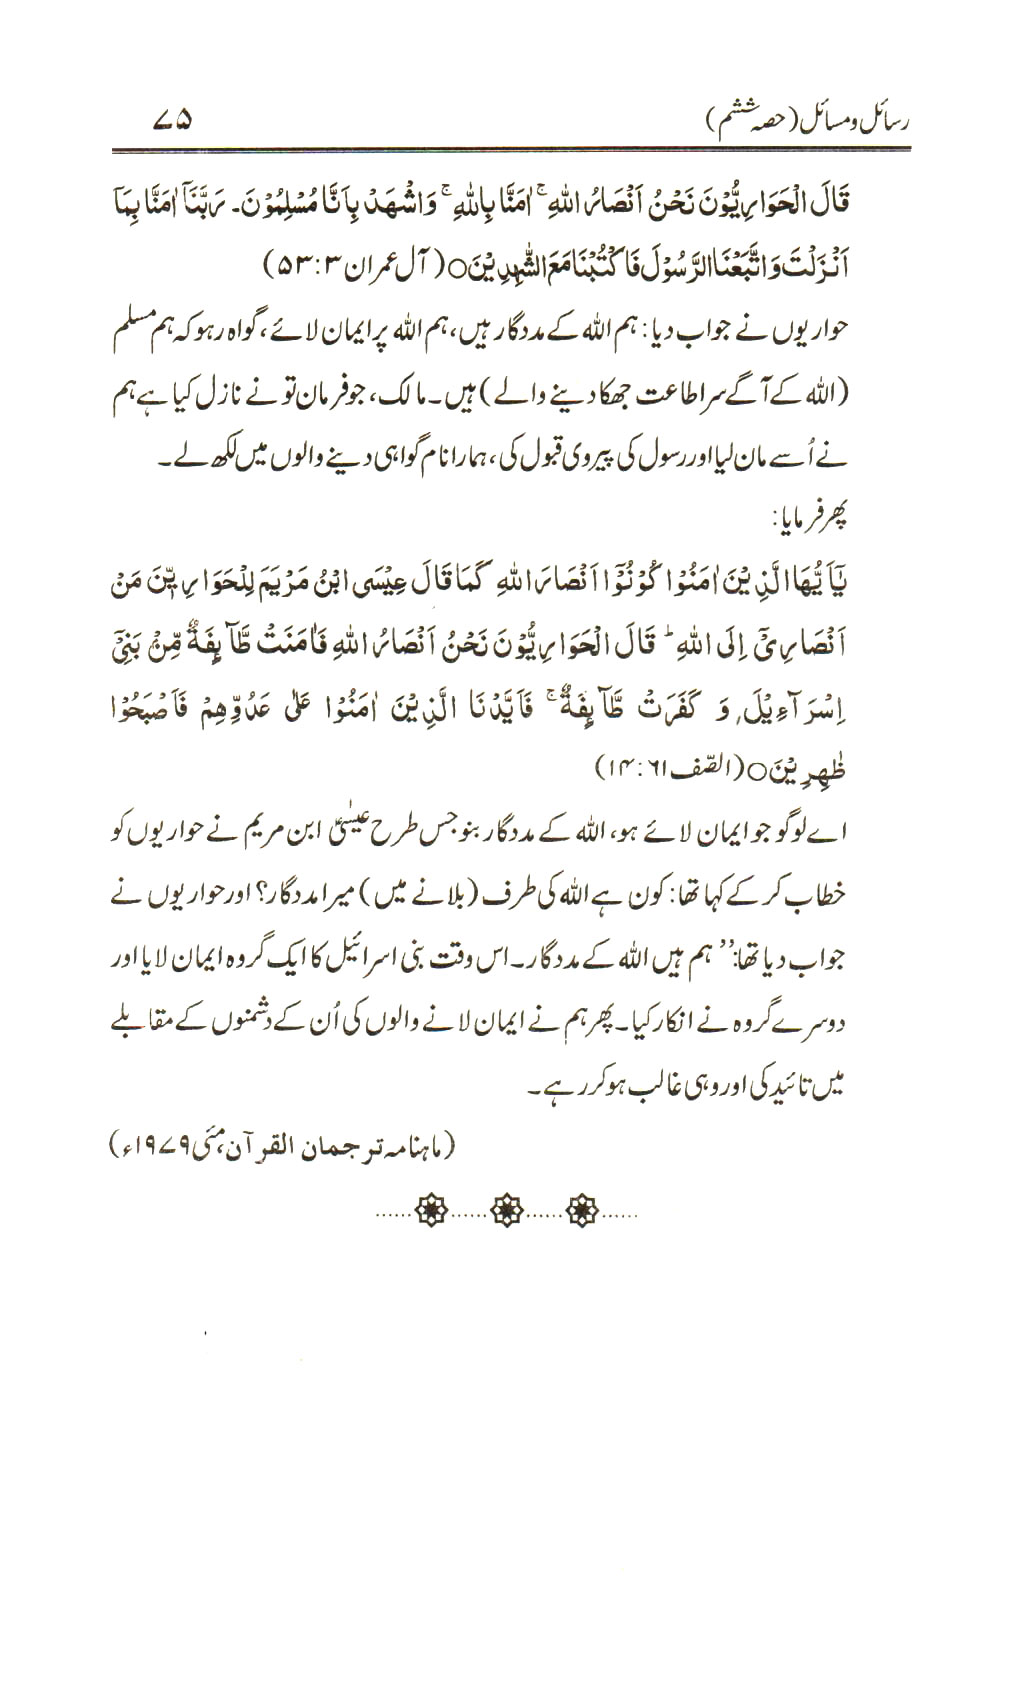 رسائل و مسائل (حصہ ششم) ۷۵
قَالَ الْحَوَارِيُّوْنَ نَحْنُ اَنْصَارُ اللهِ ۚ اٰمَنَّا بِاللهِ ۚ وَاشْهَدْ بِاَنَّا مُسْلِمُوْنَ۔ رَبَّنَآ اٰمَنَّا بِمَآ
اَنْزَلْتَ وَاتَّبَعْنَا الرَّسُوْلَ فَاكْتُبْنَا مَعَ الشّٰهِدِيْنَ○ (آل عمران ۳:۵۳)
حواریوں نے جواب دیا: ہم اللہ کے مددگار ہیں، ہم اللہ پر ایمان لائے، گواہ رہو کہ ہم مسلم
(اللہ کے آگے سر اطاعت جھکا دینے والے) ہیں۔ مالک، جو فرمان تو نے نازل کیا ہے ہم
نے اُسے مان لیا اور رسول کی پیروی قبول کی، ہمارا نام گواہی دینے والوں میں لکھ لے۔
پھر فرمایا:
يٰٓاَيُّهَا الَّذِيْنَ اٰمَنُوْا كُوْنُوْٓا اَنْصَارَ اللهِ كَمَا قَالَ عِيْسَى ابْنُ مَرْيَمَ لِلْحَوَارِيّٖنَ مَنْ
اَنْصَارِيْٓ اِلَى اللهِ ؕ قَالَ الْحَوَارِيُّوْنَ نَحْنُ اَنْصَارُ اللهِ فَاٰمَنَتْ طَّآىِٕفَةٌ مِّنْۢ بَنِيْٓ
اِسْرَآءِيْلَ وَ كَفَرَتْ طَّآىِٕفَةٌ ۚ فَاَيَّدْنَا الَّذِيْنَ اٰمَنُوْا عَلٰى عَدُوِّهِمْ فَاَصْبَحُوْا
ظٰهِرِيْنَ○ (الصّف ۶۱:۱۴)
اے لوگو جو ایمان لائے ہو، اللہ کے مددگار بنو جس طرح عیسٰیؑ ابن مریم نے حواریوں کو
خطاب کر کے کہا تھا: کون ہے اللہ کی طرف (بلانے میں) میرا مددگار؟ اور حواریوں نے
جواب دیا تھا:’’ ہم ہیں اللہ کے مددگار۔ اس وقت بنی اسرائیل کا ایک گروہ ایمان لایا اور
دوسرے گروہ نے انکار کیا۔ پھر ہم نے ایمان لانے والوں کی اُن کے دشمنوں کے مقابلے
میں تائید کی اور وہی غالب ہو کر رہے۔
(ماہنامہ ترجمان القرآن، مئی ۱۹۷۹ء)